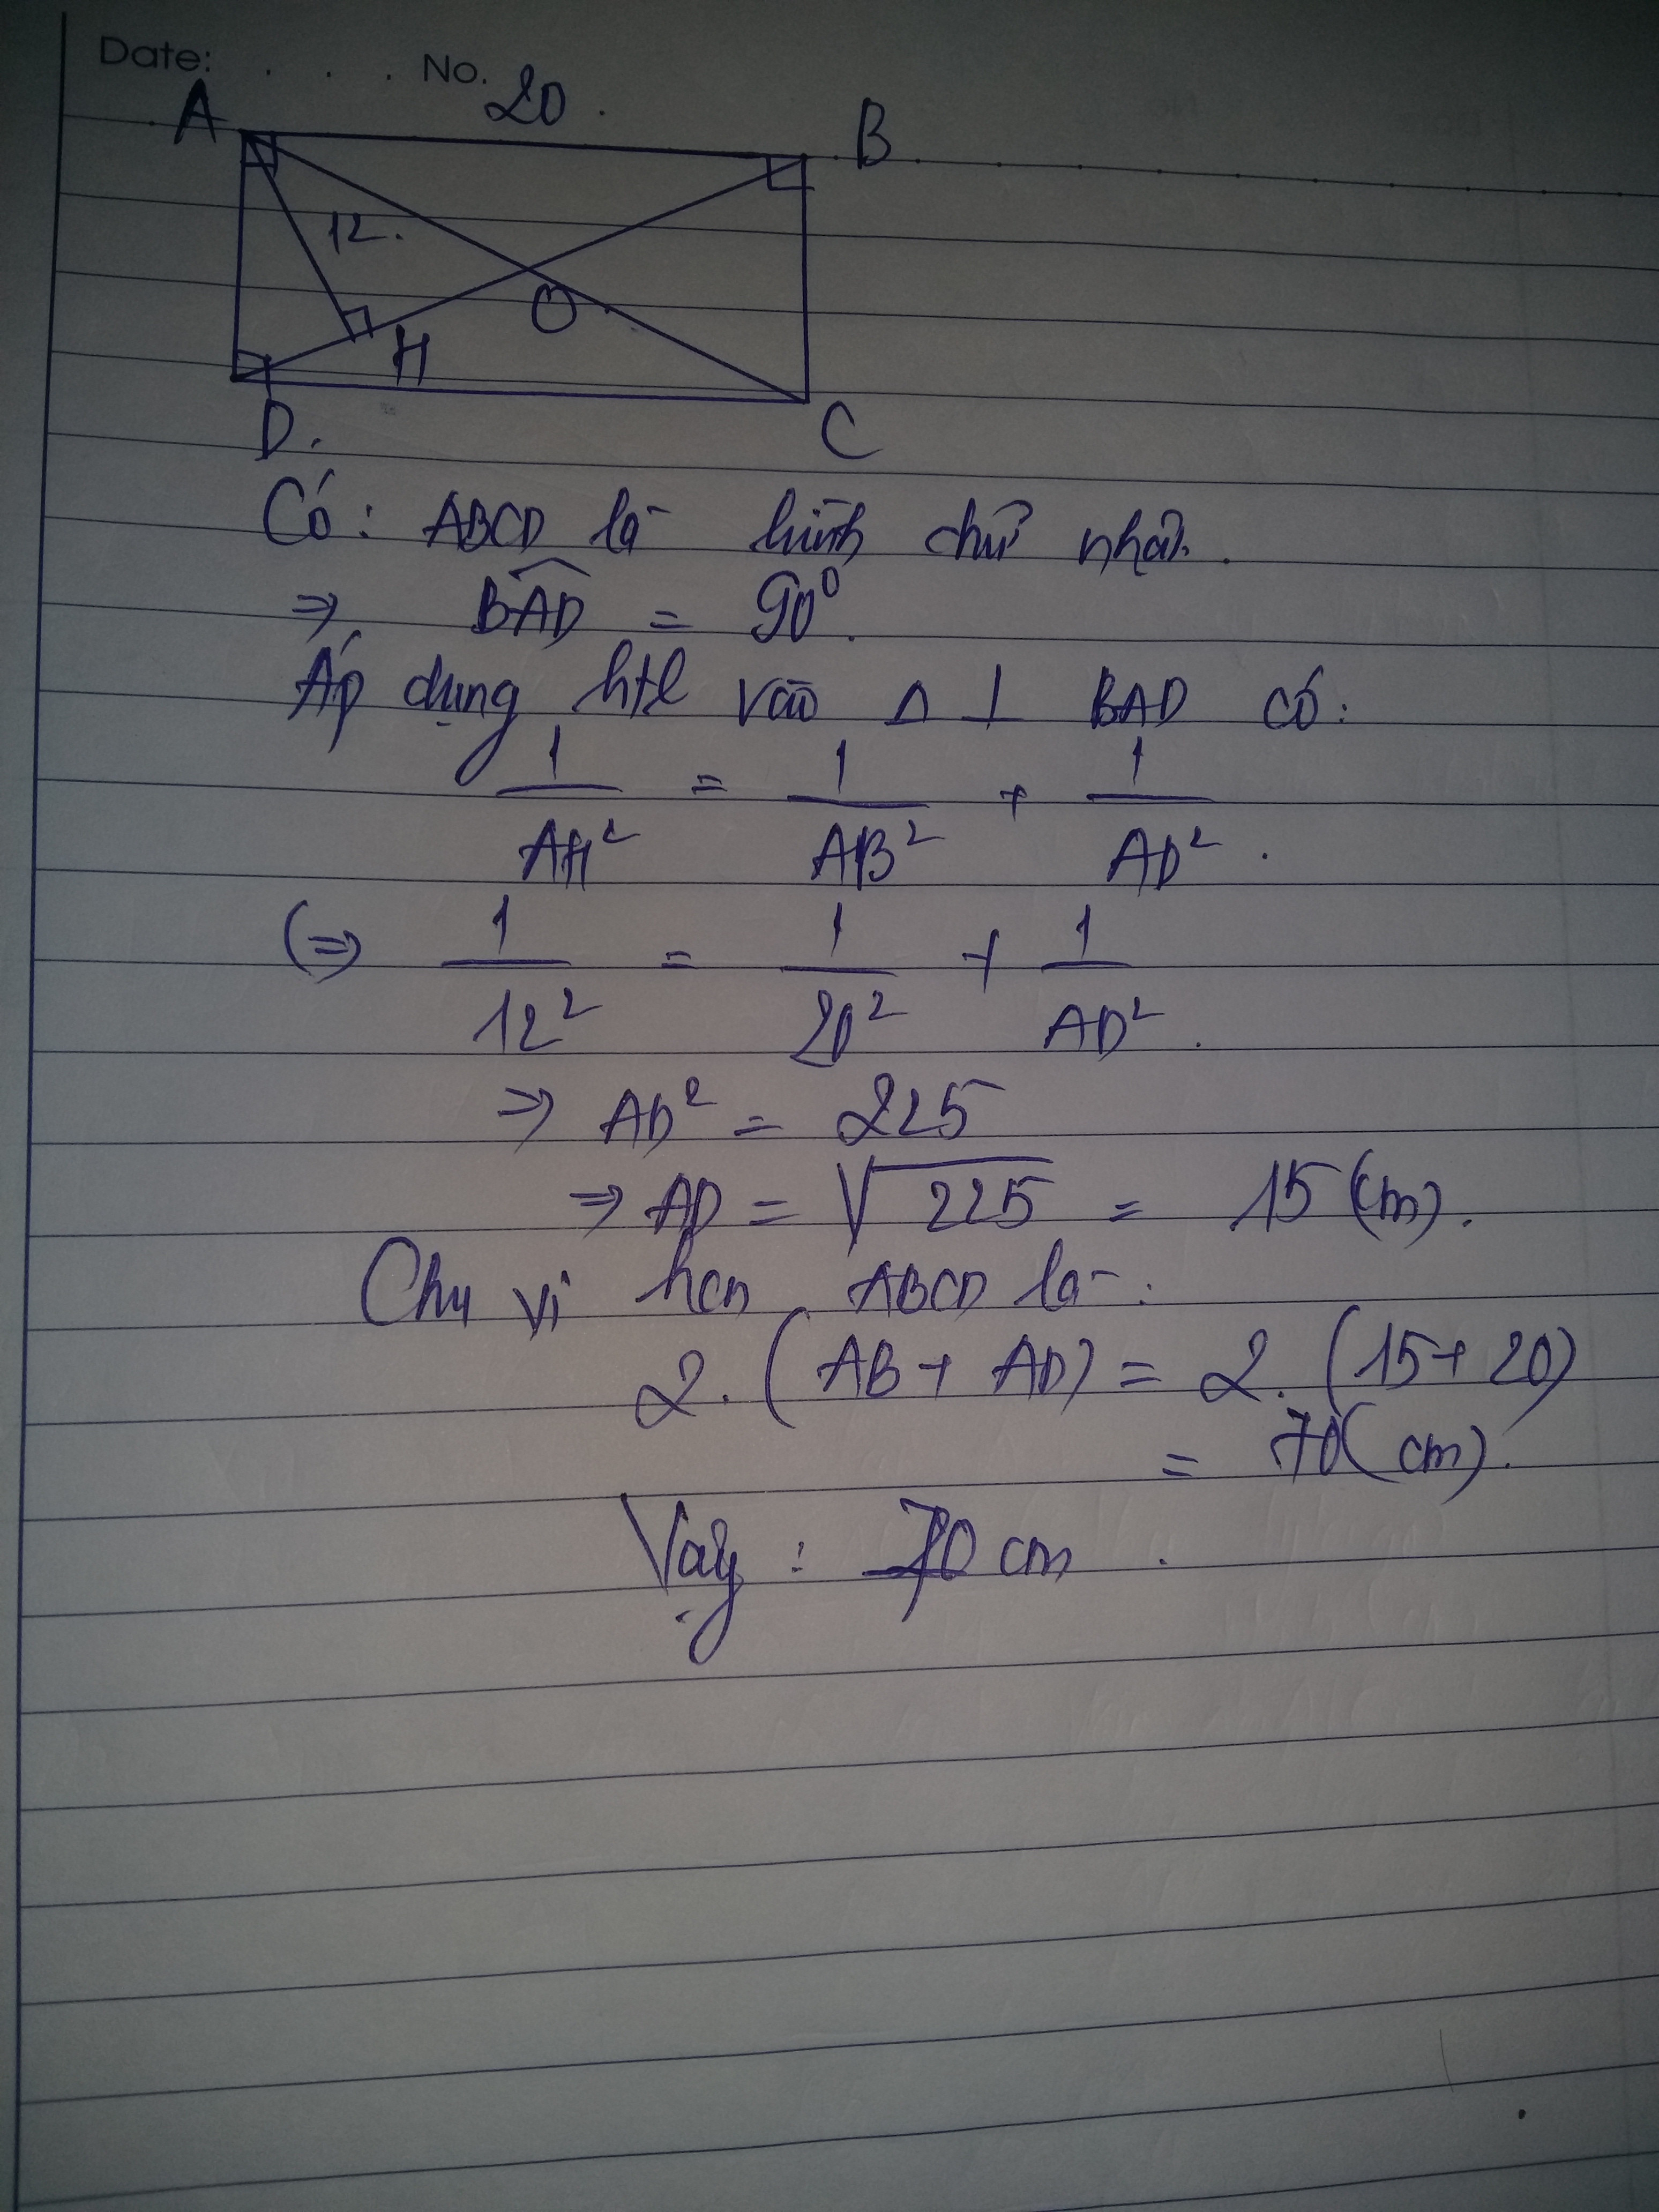 Date: . . . No.
20.
A
B
12.
O
H
D.
C
Có: ABCD là hình chữ nhật.
⇒ BAD = 90⁰.
Áp dụng htl vào Δ ⊥ BAD có:
1/AH² = 1/AB² + 1/AD².
(⇒ 1/12² = 1/20² + 1/AD².
⇒ AD² = 225
⇒ AD = √225 = 15 (cm).
Chu vi hcn ABCD là:
2. (AB + AD) = 2. (15 + 20)
= 70 (cm).
Vậy : 70 cm .